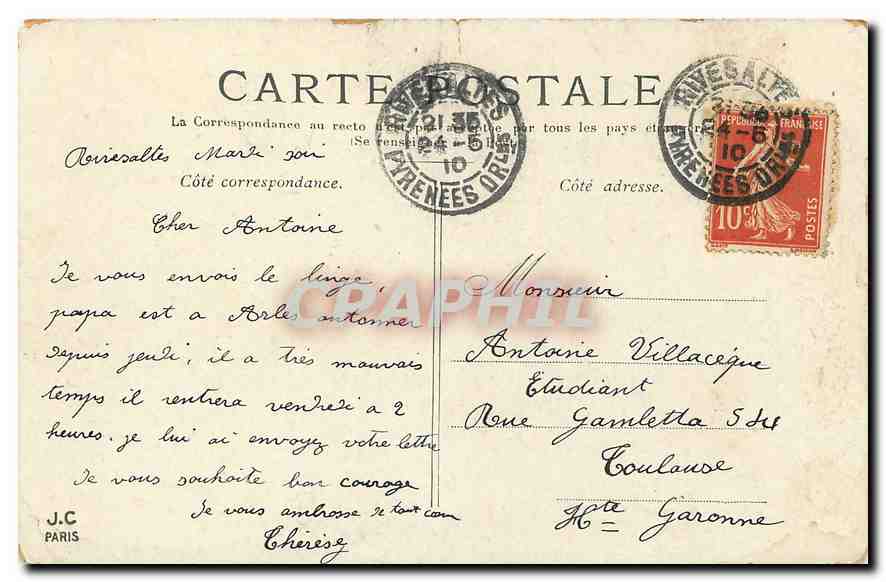 CARTE POSTALE
La Correspondance au recto n'est pas acceptée par tous les pays étrangers
(Se renseigner à la Poste)
Rivesaltes Mardi soir
Côté correspondance.
Côté adresse.
RIVESALTES
21 35
4-5
10
PYRENEES ORLES
RIVESALTES
21 35
4-5
10
PYRENEES ORLES
REPUBLIQUE FRANÇAISE
10c
POSTES
Cher Antoine
Je vous envois le linge,
papa est a Arles
depuis jeudi, il a très mauvais
temps il rentrera vendredi a 2
heures. je lui ai envoyez votre lettre
Je vous souhaite bon courage
Je vous ambrosse de tout cœur
Thérèse
Monsieur
Antoine Villacèque
Etudiant
Rue Gambetta 5
Toulouse
Hte Garonne
J.C
PARIS
CRAPHIL